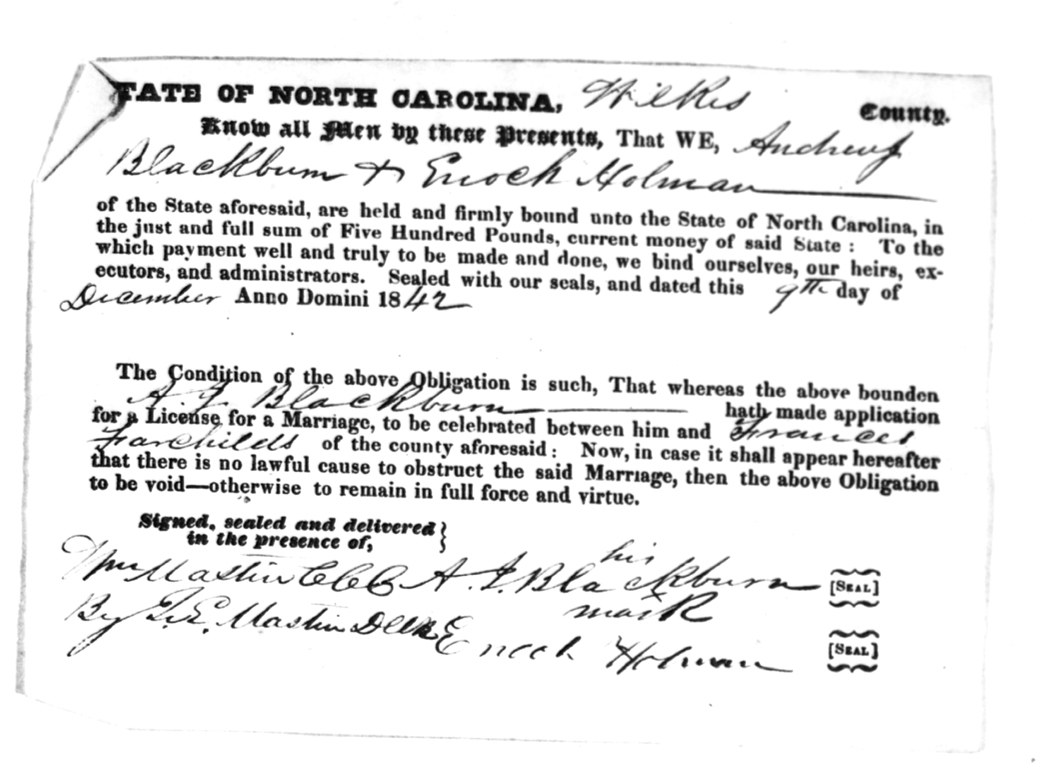 TATE OF NORTH CAROLINA, Wilkes County.
Know all Men by these Presents, That WE, Andrew J
Blackburn & Enoch Holman
of the State aforesaid, are held and firmly bound unto the State of North Carolina, in
the just and full sum of Five Hundred Pounds, current money of said State: To the
which payment well and truly to be made and done, we bind ourselves, our heirs, ex-
ecutors, and administrators. Sealed with our seals, and dated this 9th day of
December Anno Domini 1842
The Condition of the above Obligation is such, That whereas the above bounden
A. J. Blackburn hath made application
for a License for a Marriage, to be celebrated between him and Frances
Farchilds of the county aforesaid: Now, in case it shall appear hereafter
that there is no lawful cause to obstruct the said Marriage, then the above Obligation
to be void—otherwise to remain in full force and virtue.
Signed, sealed and delivered
in the presence of,
his
Wm Mastin CCC A. J. Blackburn [SEAL]
mark
By J. E. Mastin Enoch Holman [SEAL]